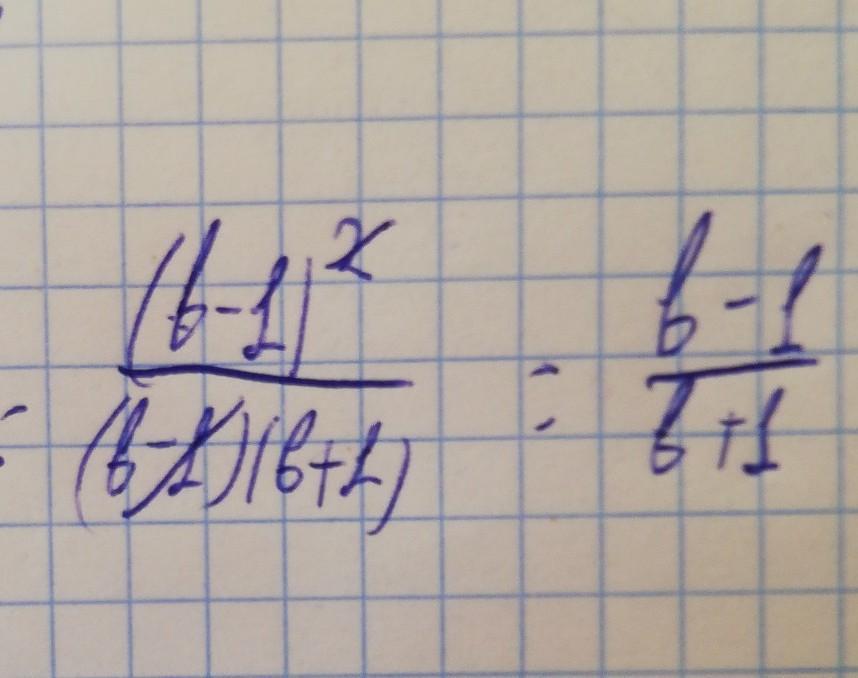 = (b-1)² / (b-1)(b+1) = b-1 / b+1